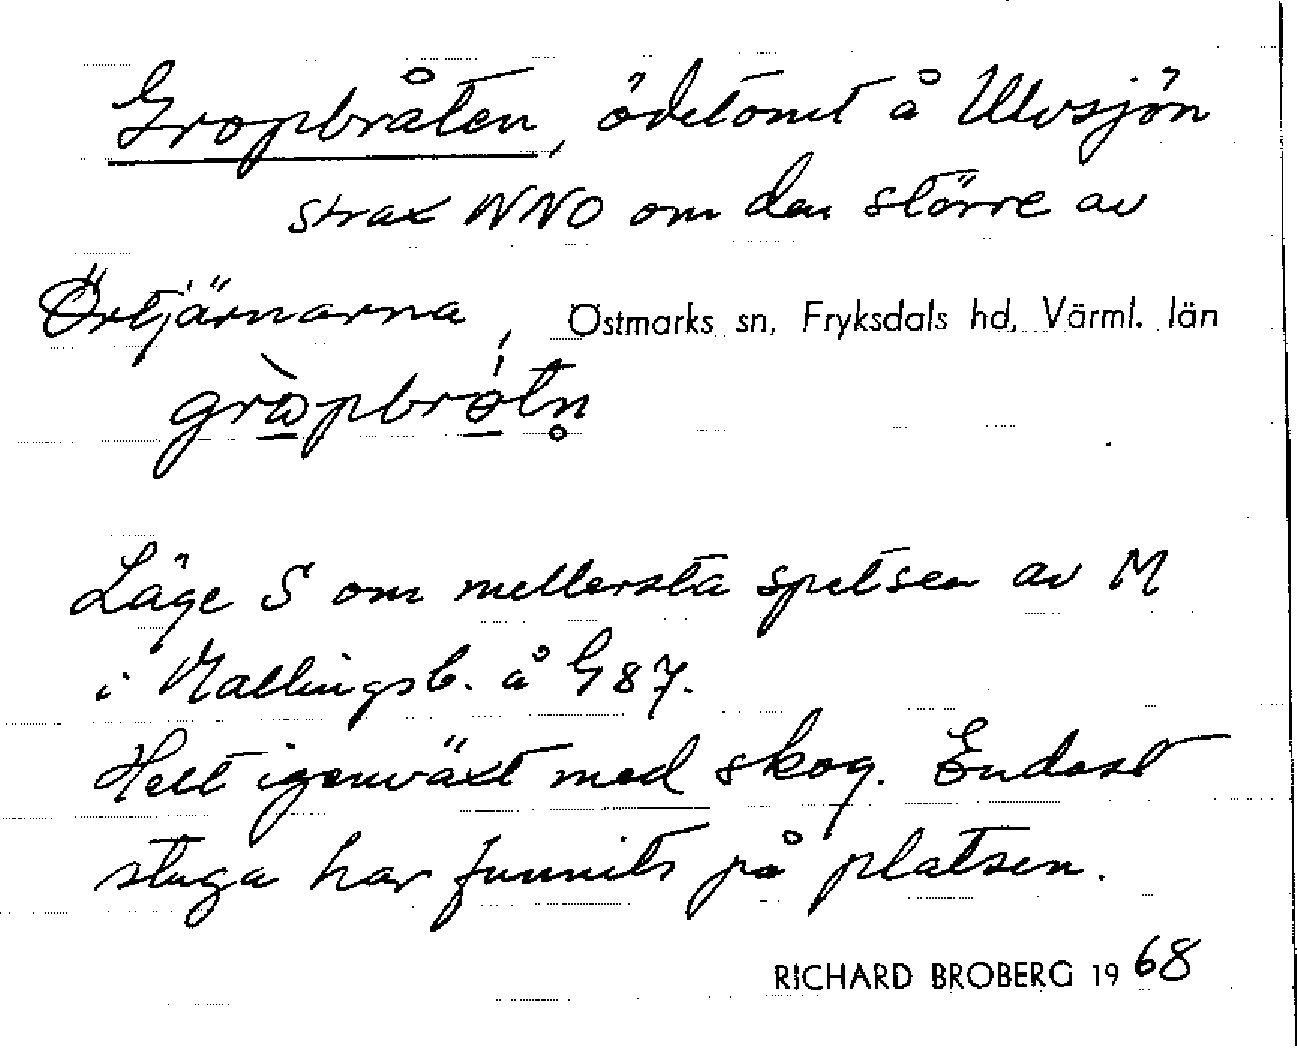 Gropbråten, ödetomt å Ulvsjön
strax NNO om den större av
Örtjärnarna, Östmarks sn, Fryksdals hd, Värml. län
Läge S om mellersta spetsen av M
i Mallingsb. å G 87.
Helt igenväxt med skog. Endast
stuga har funnits på platsen.
RICHARD BROBERG 19 68